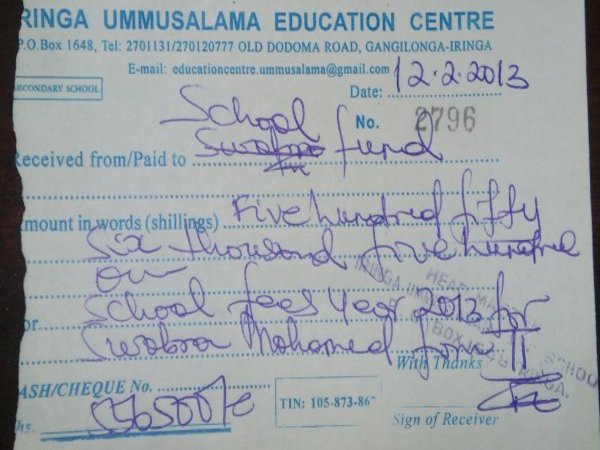 RINGA UMMUSALAMA EDUCATION CENTRE
P.O.Box 1648, Tel: 2701131/270120777 OLD DODOMA ROAD, GANGILONGA-IRINGA
E-mail: educationcentre.ummusalama@gmail.com
ECONDARY SCHOOL
Date: 12.2.2013
No. 2796
School
eceived from/Paid to fund
mount in words (shillings) Five hundred fifty
Six thousand five hundred
School fees year 2013 for
or
Swabra Mohamed form II
With Thanks
ASH/CHEQUE No.
hs. 556500/=
TIN: 105-873-86
Sign of Receiver